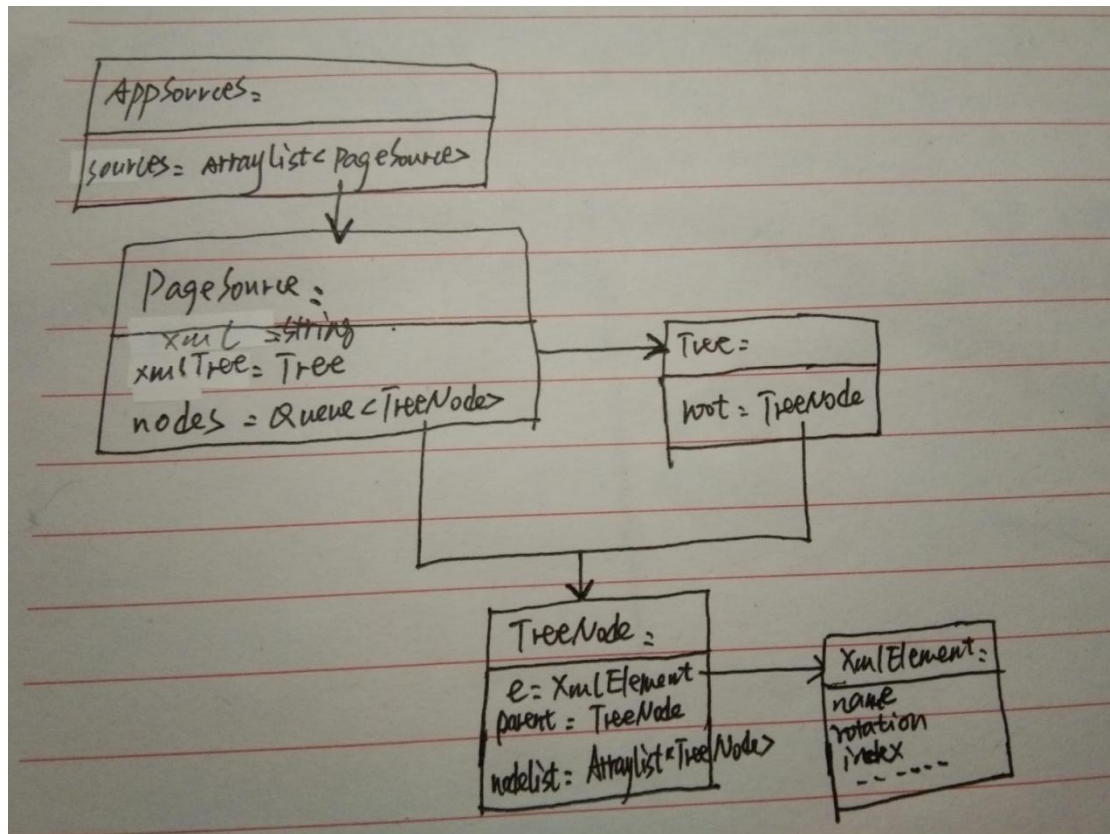 AppSources:
sources: ArrayList<PageSource>
PageSource:
xml :string
xmlTree: Tree
nodes : Queue<TreeNode>
Tree:
root: TreeNode
TreeNode:
e: XmlElement
parent: TreeNode
nodelist: Arraylist<TreeNode>
XmlElement:
name
rotation
index
------